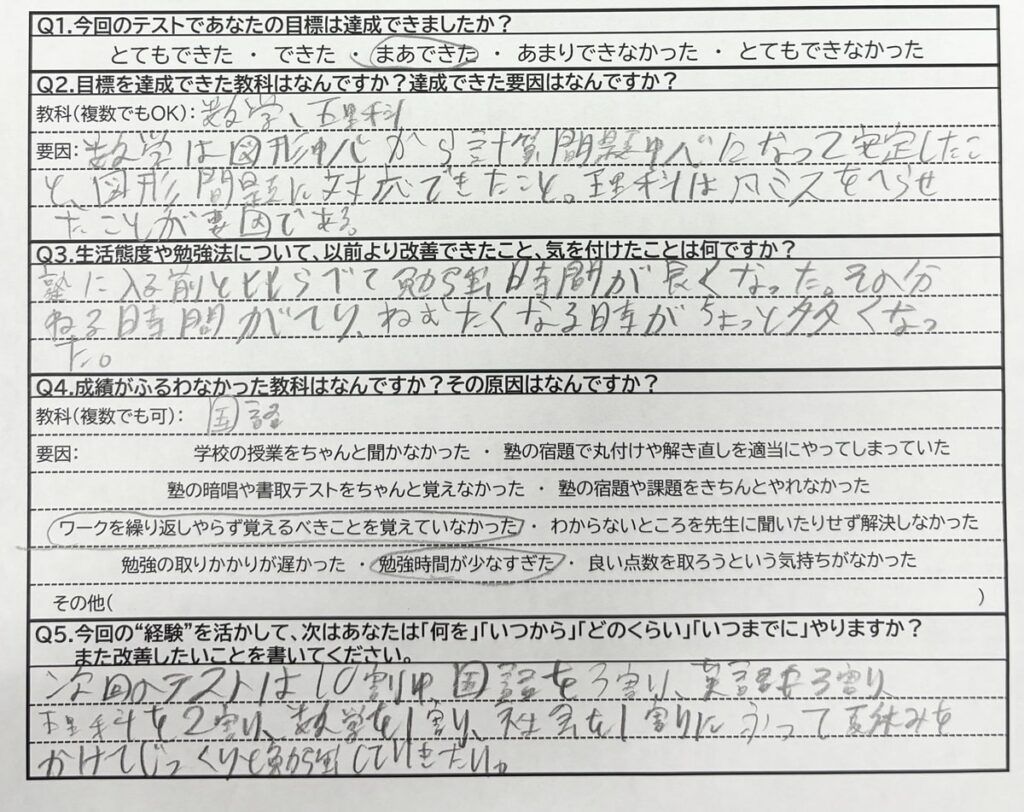 Q1.今回のテストであなたの目標は達成できましたか？
とてもできた ・ できた ・ まあできた ・ あまりできなかった ・ とてもできなかった
Q2.目標を達成できた教科はなんですか？達成できた要因はなんですか？
教科（複数でもOK）：数学、理科
要因：数学は図形中心から計算問題中心になって安定したこ
と、図形問題に対応できたこと。理科は凡ミスをへらせ
たことが要因である。
Q3.生活態度や勉強法について、以前より改善できたこと、気を付けたことは何ですか？
塾に入る前とくらべて勉強時間が長くなった。その分
ねる時間がへり、ねむたくなる時がちょっと多くなっ
た。
Q4.成績がふるわなかった教科はなんですか？その原因はなんですか？
教科（複数でも可）：国語
要因： 学校の授業をちゃんと聞かなかった ・ 塾の宿題で丸付けや解き直しを適当にやってしまっていた
塾の暗唱や書取テストをちゃんと覚えなかった ・ 塾の宿題や課題をきちんとやれなかった
ワークを繰り返しやらず覚えるべきことを覚えていなかった ・ わからないところを先生に聞いたりせず解決しなかった
勉強の取りかかりが遅かった ・ 勉強時間が少なすぎた ・ 良い点数を取ろうという気持ちがなかった
その他（ ）
Q5.今回の“経験”を活かして、次はあなたは「何を」「いつから」「どのくらい」「いつまでに」やりますか？
また改善したいことを書いてください。
次回のテストは10割中、国語を3割り、英語を3割り、
理科を2割り、数学を1割り、社会を1割りにふって夏休みを
かけてじっくりと勉強していきたい。